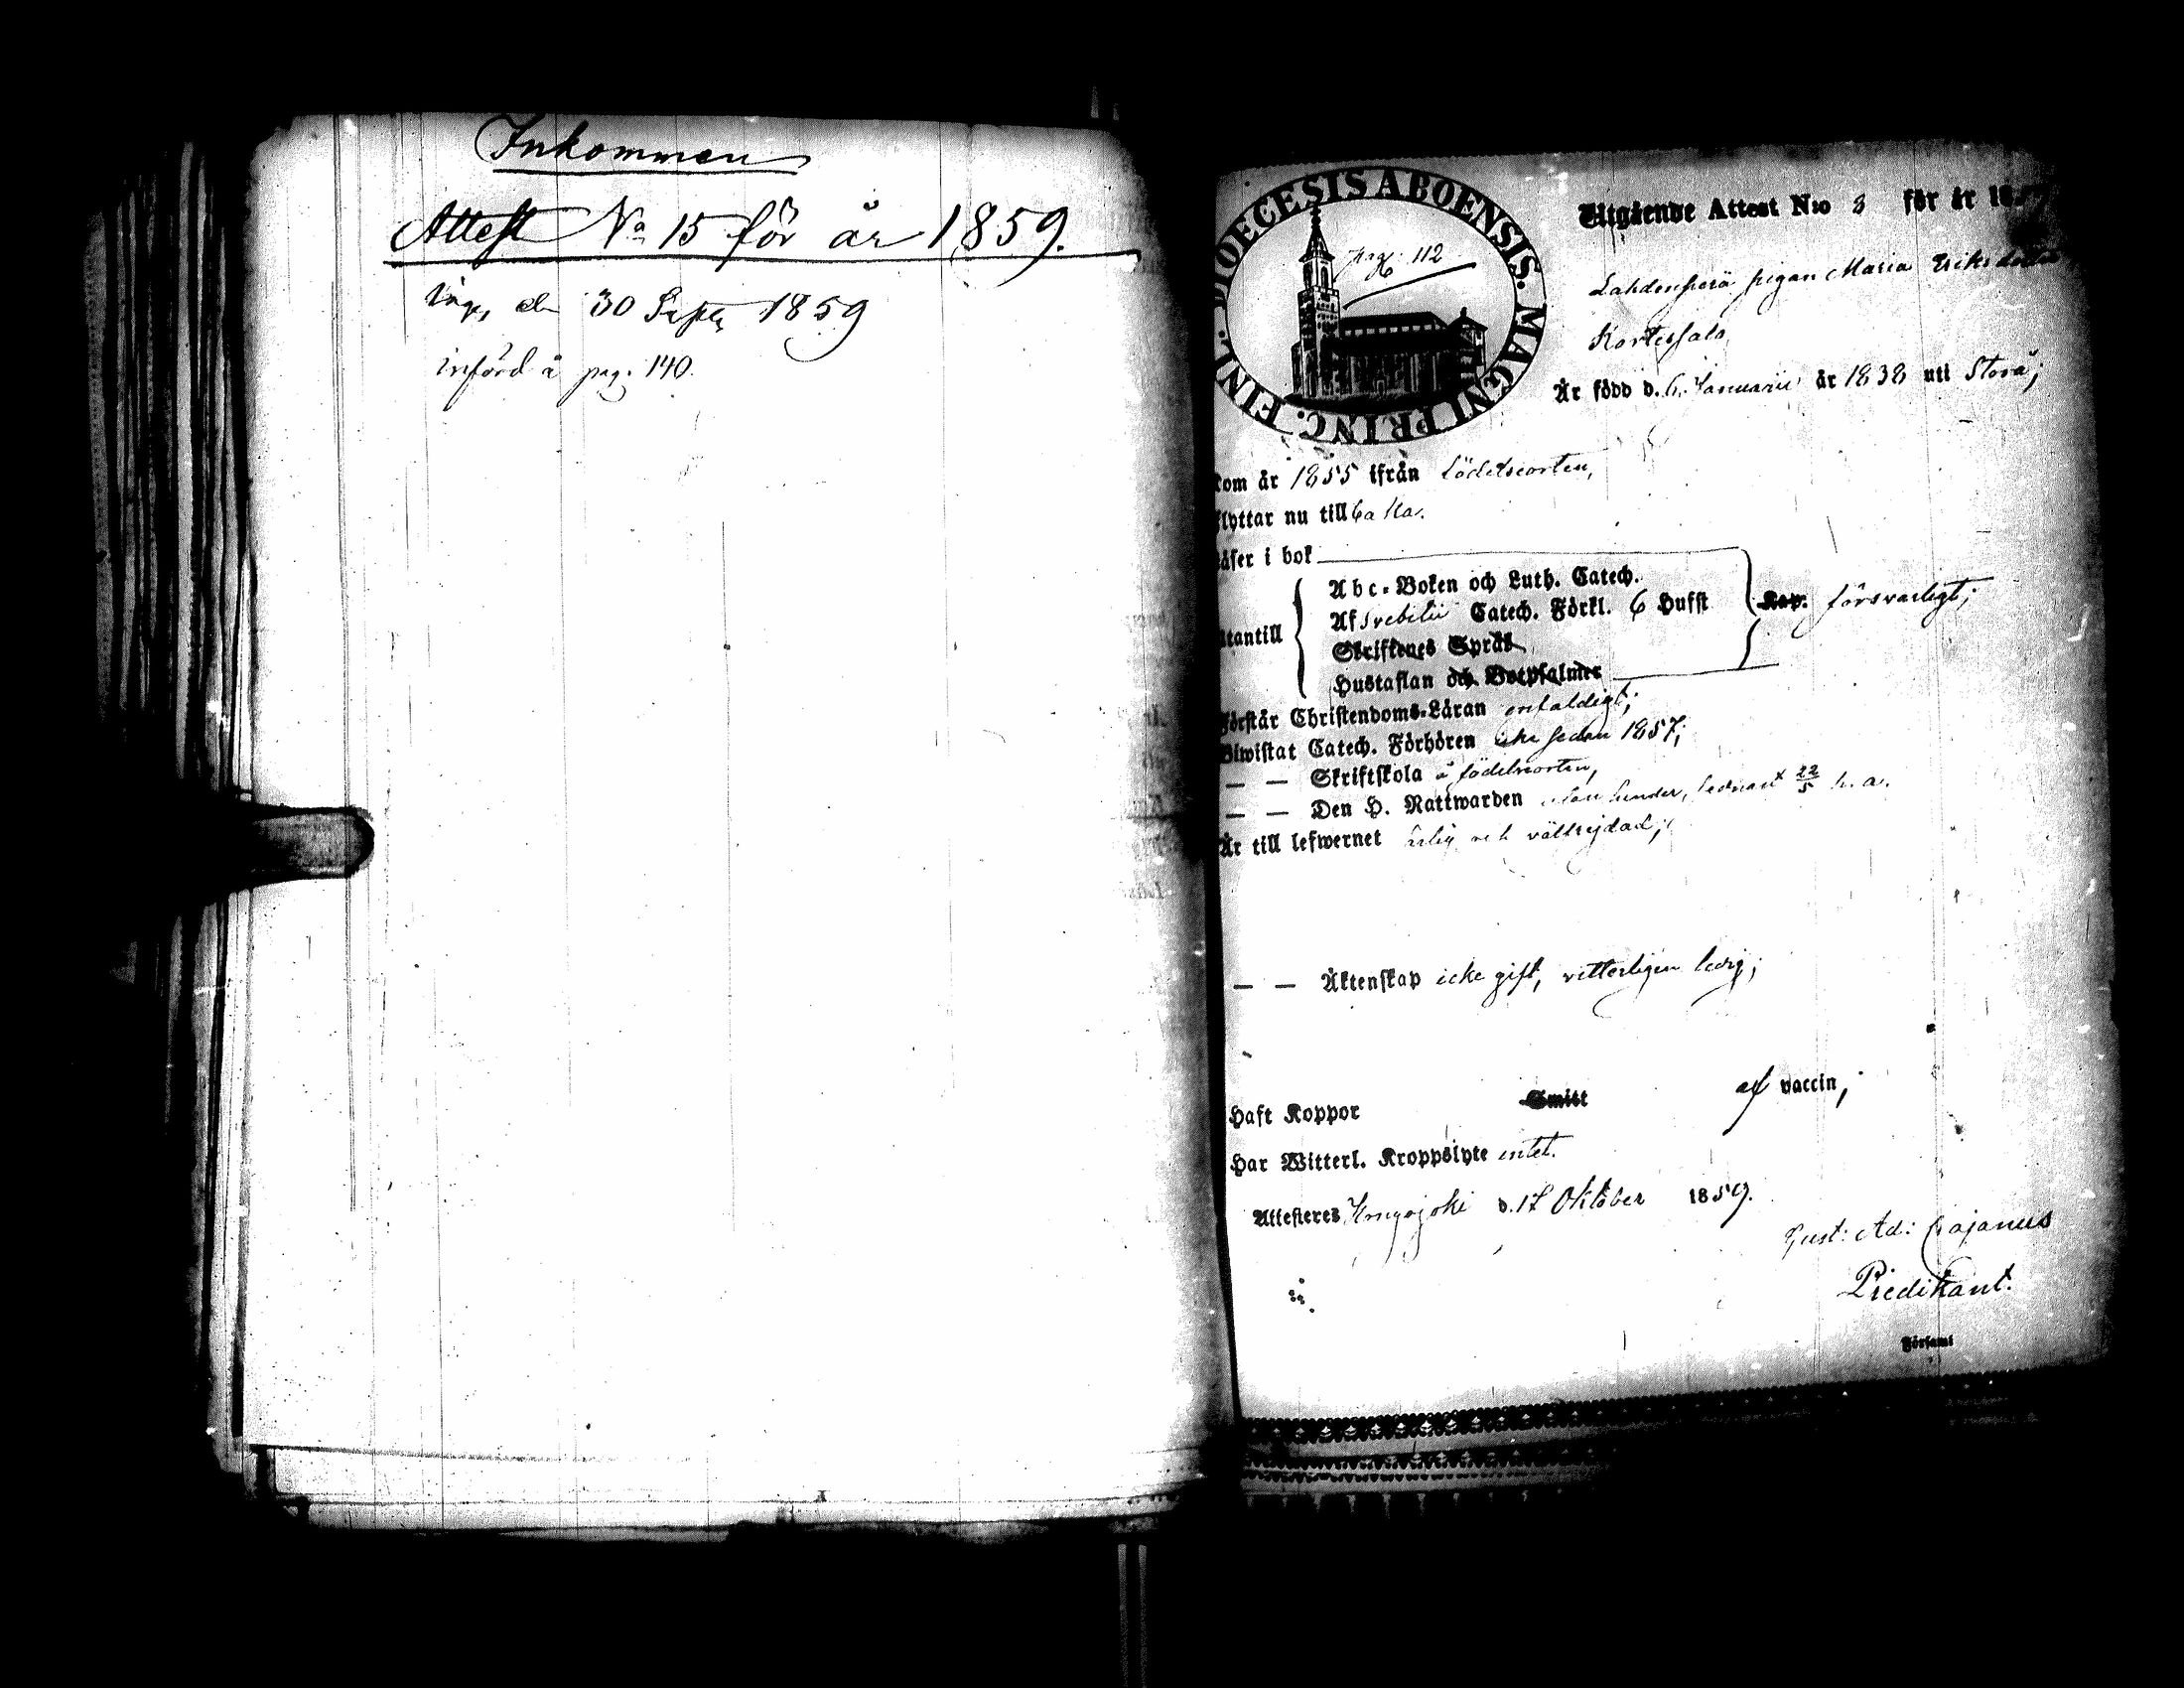 Inkommen
Attest No 15 för år 1859.
den 30 Septr 1859
införd å pag. 140.
DIOECESIS ABOENSIS. MAGNI PRINC. FINL.
pag. 112
Utgående Attest N:o 8 för år 18
Lahdenperä pigan Maria Eriksdotter
Kortesalo
Är född d. 6. Januarii år 1838 uti Storå;
kom år 1855 ifrån födelseorten,
flyttar nu till
läser i bok
Abc-Boken och Luth. Catech.
Af Svebilii Catech. Förkl. 6 Hufst Kap. försvarligt;
utantill
Skriftenes Språk
Hustaflan och Botpsalmer
Förstår Christendoms-Läran enfaldigt;
Biwistat Catech. Förhören icke sedan 1857;
— — Skriftskola å födelseorten,
— — Den H. Nattwarden utan hinder, sednast 22/5 h. a.
Är till lefwernet ärlig och välfrejdad;
— — Äktenskap icke gift, vitterligen ledig;
Haft Koppor Smitt af vaccin,
Har Witterl. Kroppslyte intet.
Attesteres Hongojoki d. 17 Oktober 1859.
Gust: Ad: Cajanus
Predikant.
Församl